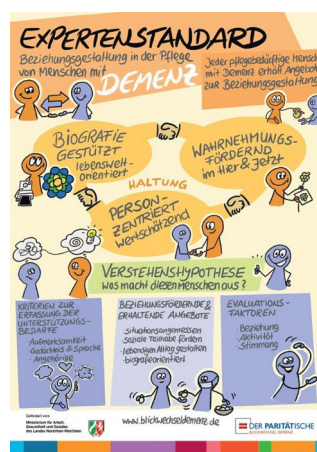 EXPERTENSTANDARD
Beziehungsgestaltung in der Pflege
von Menschen mit
DEMENZ
Jeder pflegebedürftige Mensch
mit Demenz erhält Angebote
zur Beziehungsgestaltung
BIOGRAFIE
GESTÜTZT
lebenswelt-
orientiert
WAHRNEHMUNGS-
FÖRDERND
im Hier & Jetzt
HALTUNG
PERSON-
ZENTRIERT
wertschätzend
VERSTEHENSHYPOTHESE
Was macht diesen Menschen aus?
KRITERIEN ZUR
ERFASSUNG DER
UNTERSTÜTZUNGS-
BEDARFE
Aufmerksamkeit
Gedächtnis & Sprache
Angehörige
BEZIEHUNGSFÖRDERNDE &
ERHALTENDE ANGEBOTE
situationsangemessen
soziale Teilhabe fördern
lebendigen Alltag gestalten
biografieorientiert
EVALUATIONS-
FAKTOREN
Beziehung
Aktivität
Stimmung
Gefördert vom
Ministerium für Arbeit,
Gesundheit und Soziales
des Landes Nordrhein-Westfalen
www.blickwechseldemenz.de
DER PARITÄTISCHE
BLICKWECHSEL DEMENZ